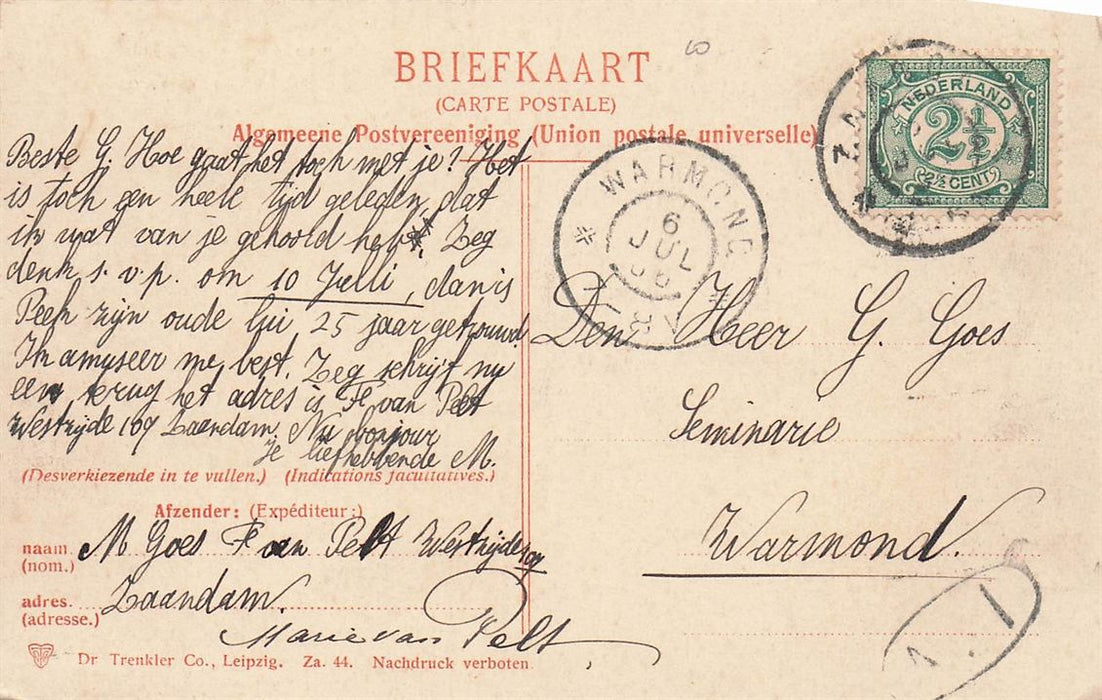 BRIEFKAART
(CARTE POSTALE)
Algemeene Postvereeniging (Union postale universelle)
NEDERLAND
2½
2½ CENT
WARMOND
6
JUL
06
Beste G. Hoe gaat het toch met je? Het
is toch een heele tijd geleden dat
ik wat van je gehoord heb. Zeg
denk s.v.p. om 10 Julli, dan is
Peeh zijn oude lui 25 jaar getrouwd
Ik amuseer me best. Zeg schrijf nu
een terug het adres is F. van Pelt
Westzijde 109 Zaandam. Nu bonjour
Je liefhebbende M.
(Desverkiezende in te vullen.) (Indications facultatives.)
Afzender: (Expéditeur:)
naam M Goes F van Pelt Westzijde 109
(nom.)
adres. Zaandam.
(adresse.)
Marie van Pelt
Dr Trenkler Co., Leipzig. Za. 44. Nachdruck verboten
Den Heer G. Goes
Seminarie
Warmond.